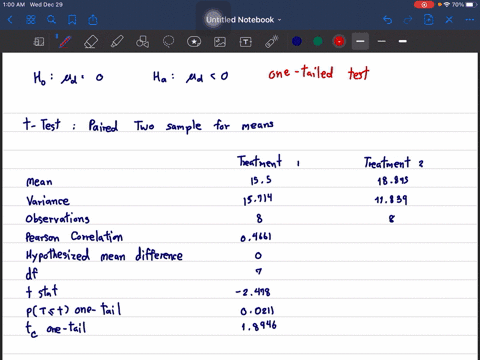 1:00 AM Wed Dec 29
70%
Untitled Notebook
H₀ : μd = 0 Ha : μd < 0 one-tailed test
t-Test : Paired Two sample for means
Treatment 1 Treatment 2
Mean 15.5
Variance 15.714 11.839
Observations 8 8
Pearson Correlation 0.4661
Hypothesized mean difference 0
df 7
t stat -2.478
P(T≤t) one-tail 0.0211
tc one-tail 1.8946